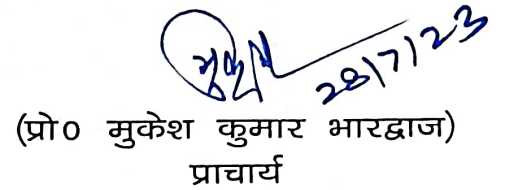 मुकेश
28/7/23
(प्रो० मुकेश कुमार भारद्वाज)
प्राचार्य